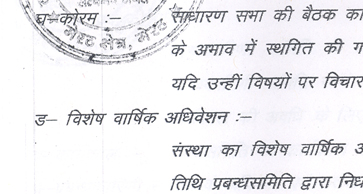 घ– कोरम :–
साधारण सभा की बैठक का
के अभाव में स्थगित की ग
यदि उन्हीं विषयों पर विचार
ड– विशेष वार्षिक अधिवेशन :–
संस्था का विशेष वार्षिक अ
तिथि प्रबन्धसमिति द्वारा निध